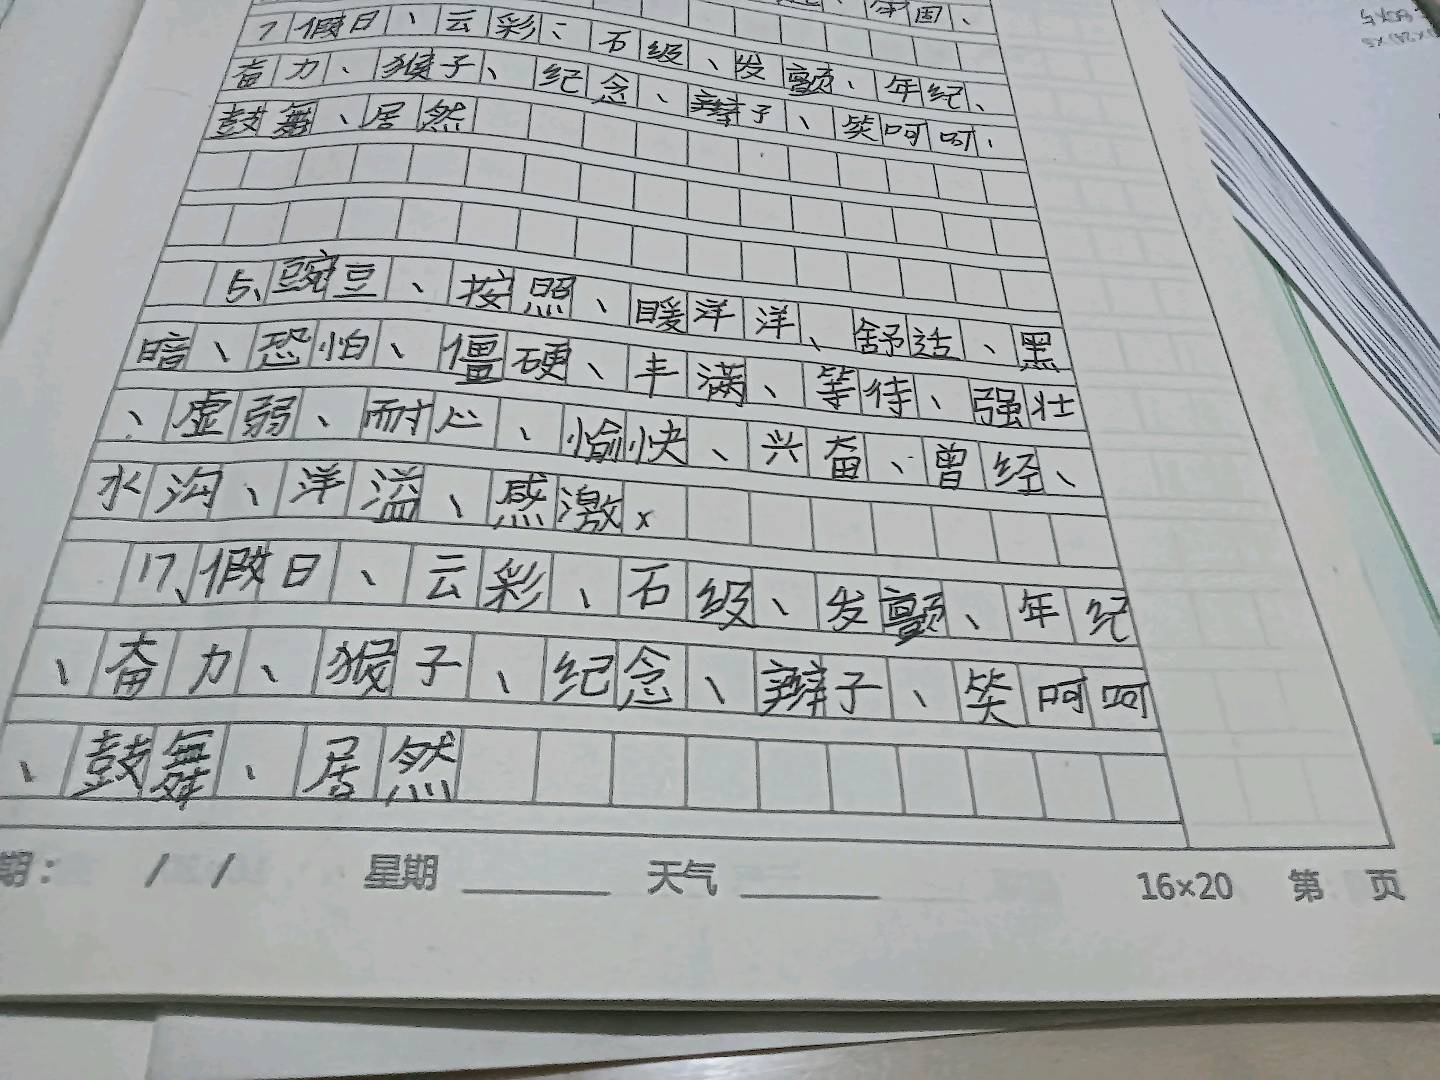 固、
7假日、云彩、石级、发颤、年纪、
奋力、猴子、纪念、辫子、笑呵呵、
鼓舞、居然
5、豌豆、按照、暖洋洋、舒适、黑
暗、恐怕、僵硬、丰满、等待、强壮
、虚弱、耐心、愉快、兴奋、曾经、
水沟、洋溢、感激、
17、假日、云彩、石级、发颤、年纪
、奋力、猴子、纪念、辫子、笑呵呵
、鼓舞、居然
期： / / 星期 ______ 天气 ______ 16×20 第 页